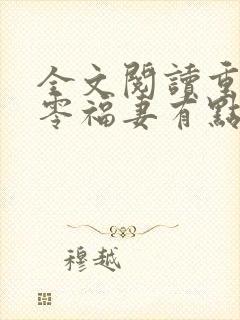 全文閱讀重
零福妻有點
穆越